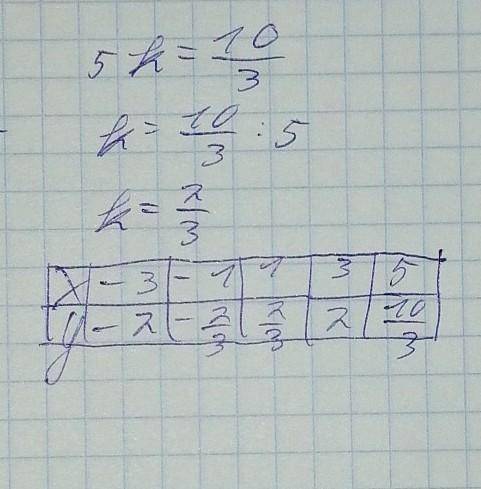 5k = 10/3
k = 10/3 : 5
k = 2/3
x | -3 | -1 | 1 | 3 | 5
y | -2 | -2/3 | 2/3 | 2 | 10/3